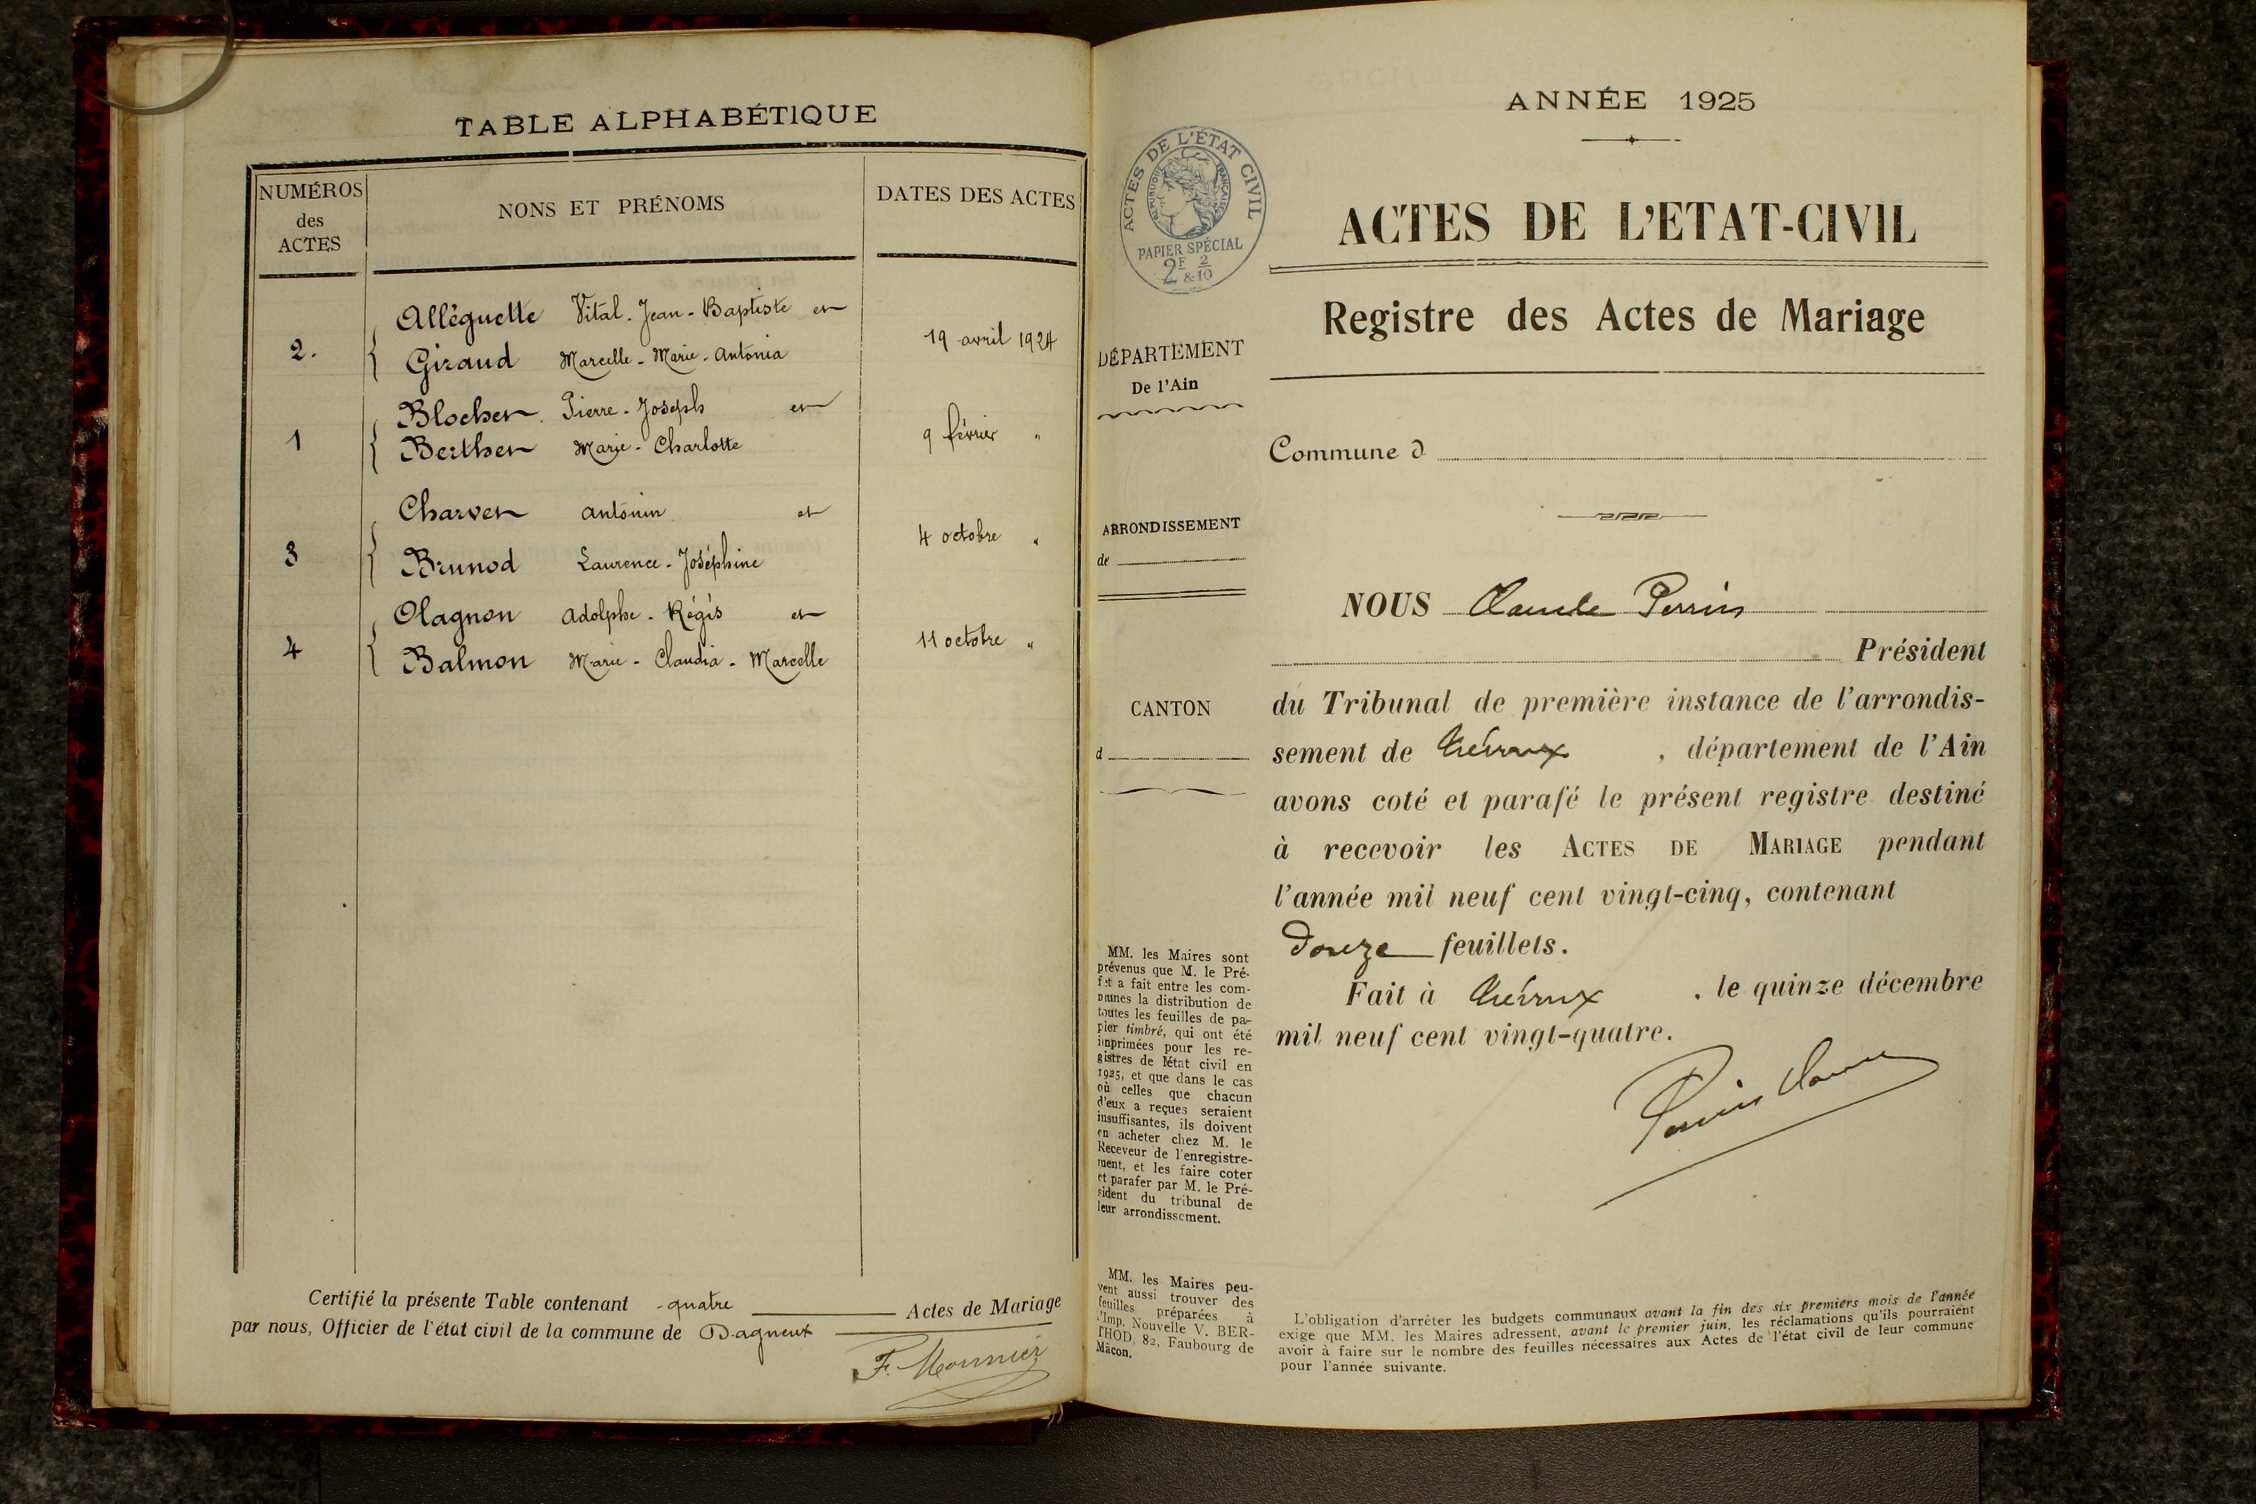 TABLE ALPHABÉTIQUE
NUMÉROS
des
ACTES
NONS ET PRÉNOMS
DATES DES ACTES
2.
Alléguette Vital. Jean-Baptiste et
Giraud Marcelle-Marie-Antonia
19 avril 1924
1
Blochet Pierre-Joseph et
Berthet Marie-Charlotte
9 février "
3
Charvet Antonin et
Brunod Laurence-Joséphine
4 octobre "
4
Olagnon Adolphe-Régis et
Balmon Marie-Claudia-Marcelle
11 octobre "
Certifié la présente Table contenant quatre Actes de Mariage
par nous, Officier de l'état civil de la commune de Dagneux
F. Mounier
ACTES DE L'ÉTAT CIVIL
RÉPUBLIQUE FRANÇAISE
PAPIER SPÉCIAL
2F & 2/10
DÉPARTEMENT
De l'Ain
ARRONDISSEMENT
de
CANTON
d
MM. les Maires sont
prévenus que M. le Pré-
fet a fait entre les com-
munes la distribution de
toutes les feuilles de pa-
pier timbré, qui ont été
imprimées pour les re-
gistres de l'état civil en
1925, et que dans le cas
où celles que chacun
d'eux a reçues seraient
insuffisantes, ils doivent
en acheter chez M. le
Receveur de l'enregistre-
ment, et les faire coter
et parafer par M. le Pré-
sident du tribunal de
leur arrondissement.
MM. les Maires peu-
vent aussi trouver des
feuilles préparées à
l'Imp. Nouvelle V. BER-
THOD, 82, Faubourg de
Mâcon.
ANNÉE 1925
ACTES DE L'ETAT-CIVIL
Registre des Actes de Mariage
Commune d
NOUS Claude Perrin
Président
du Tribunal de première instance de l'arrondis-
sement de Trévoux , département de l'Ain
avons coté et parafé le présent registre destiné
à recevoir les ACTES DE MARIAGE pendant
l'année mil neuf cent vingt-cinq, contenant
Douze feuillets.
Fait à Trévoux , le quinze décembre
mil neuf cent vingt-quatre.
Perrin Claude
L'obligation d'arrêter les budgets communaux avant la fin des six premiers mois de l'année
exige que MM. les Maires adressent, avant le premier juin, les réclamations qu'ils pourraient
avoir à faire sur le nombre des feuilles nécessaires aux Actes de l'état civil de leur commune
pour l'année suivante.